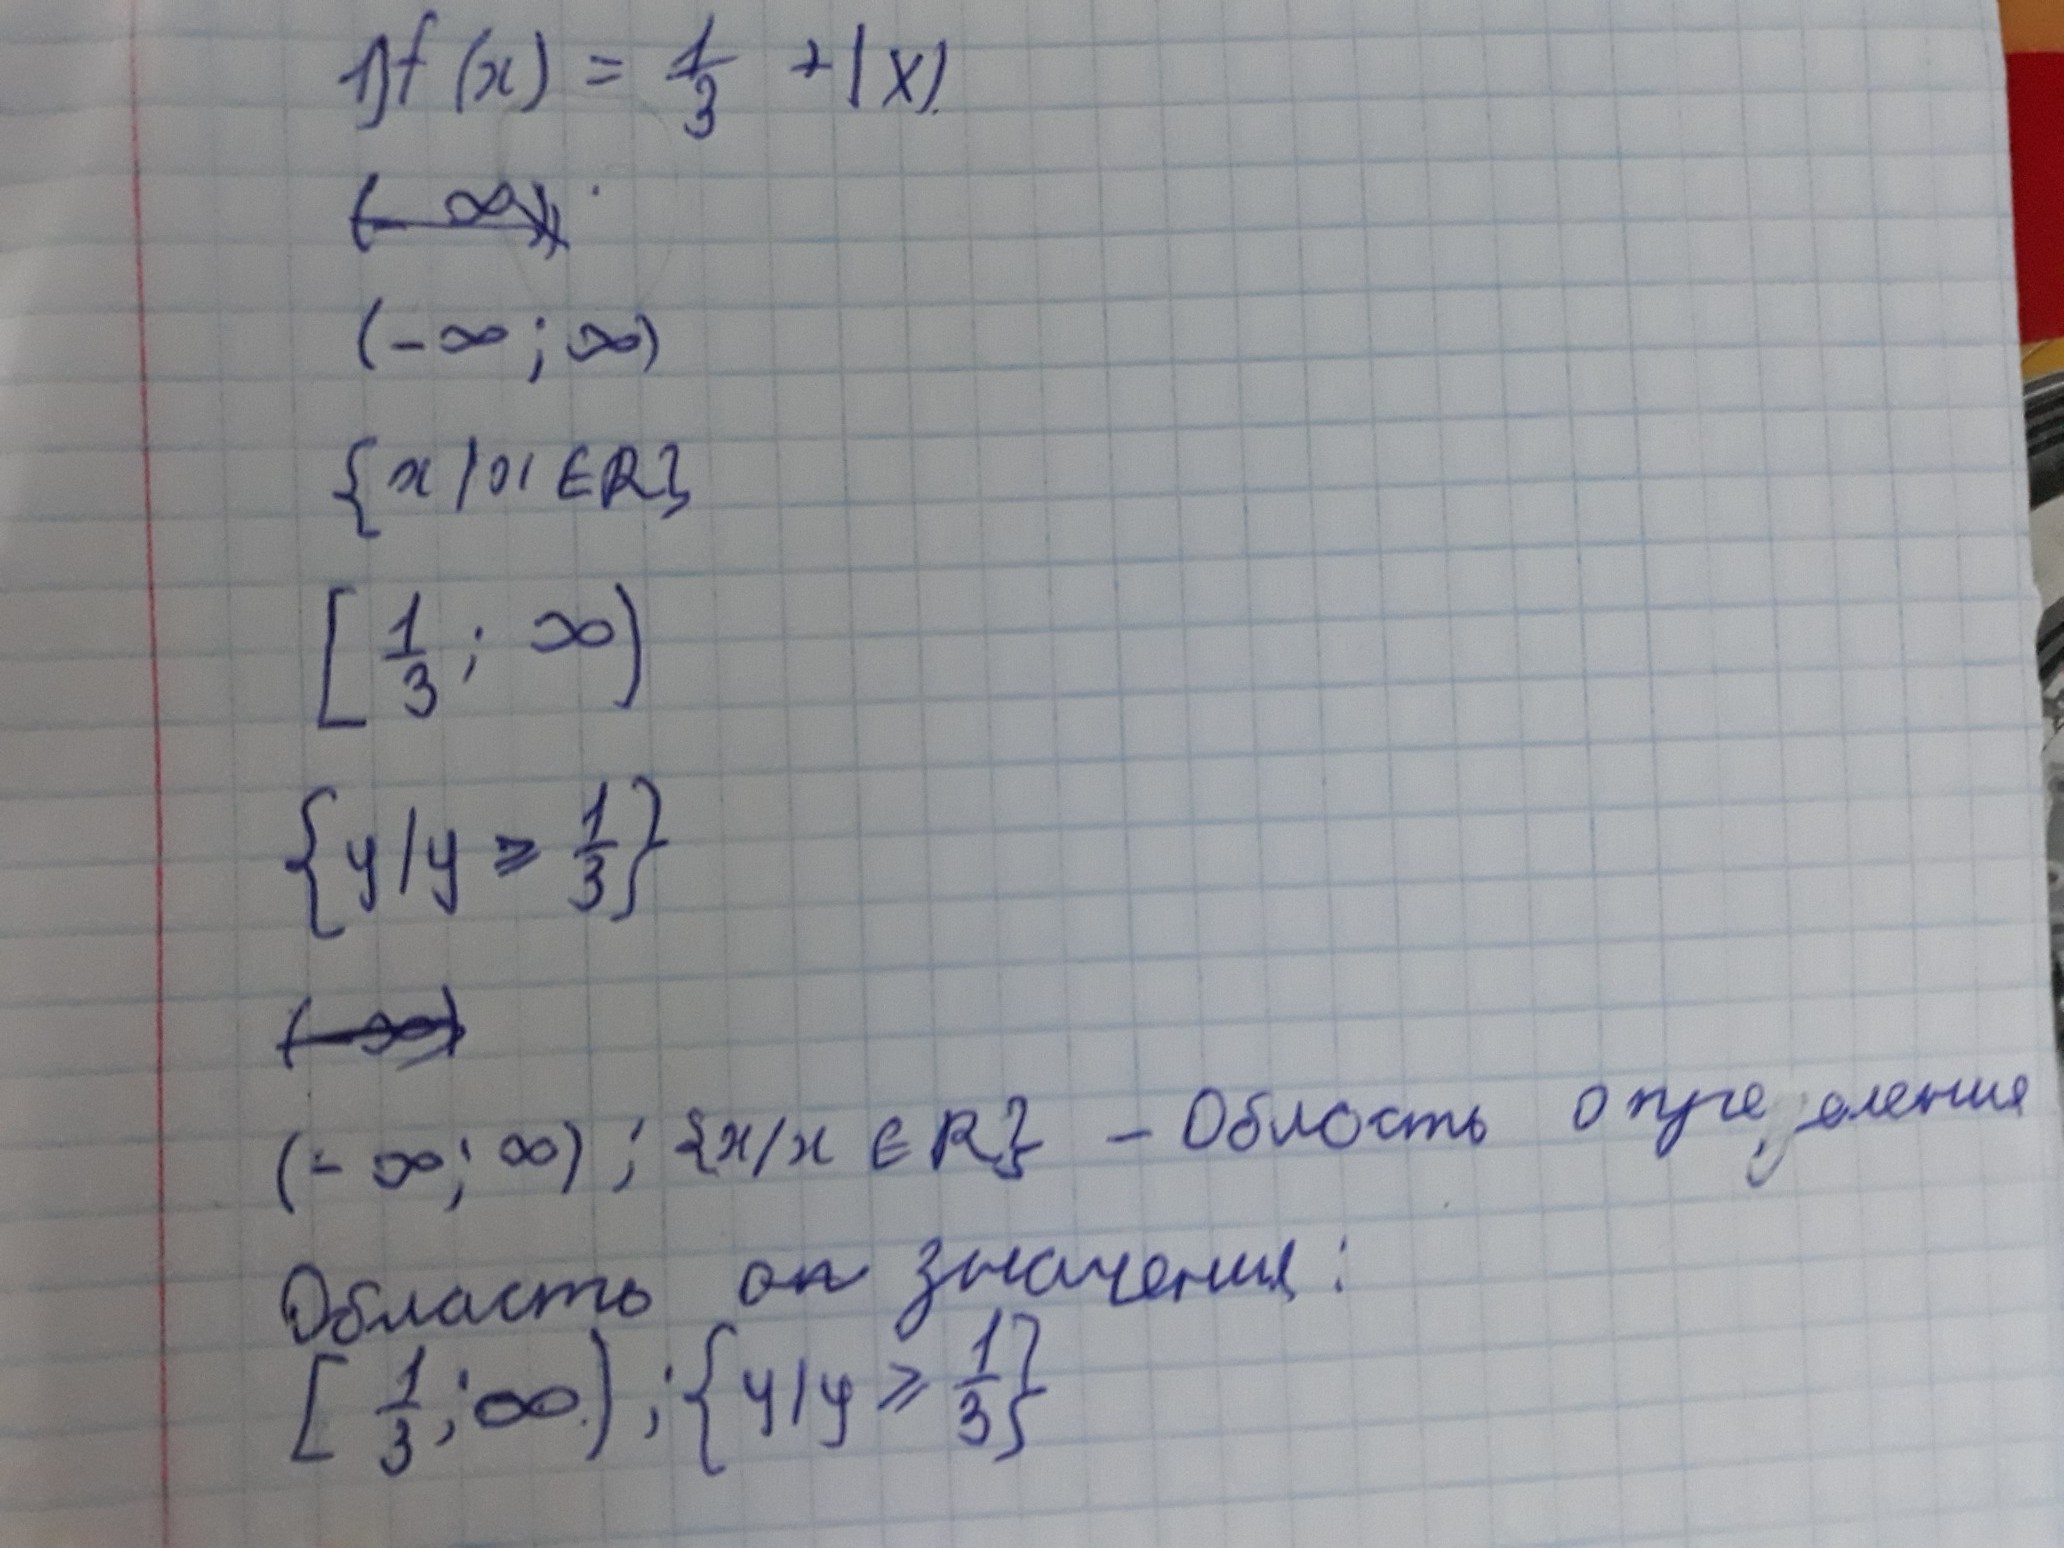 1) f(x) = 1/3 + |x|.
(- ∞)
(-∞; ∞)
{x/x ∈ R}
[1/3; ∞)
{y/y ≥ 1/3}
(-∞)
(-∞; ∞) ; {x/x ∈ R} - Область определения
Область оп значения:
[1/3; ∞) ; {y/y ≥ 1/3}